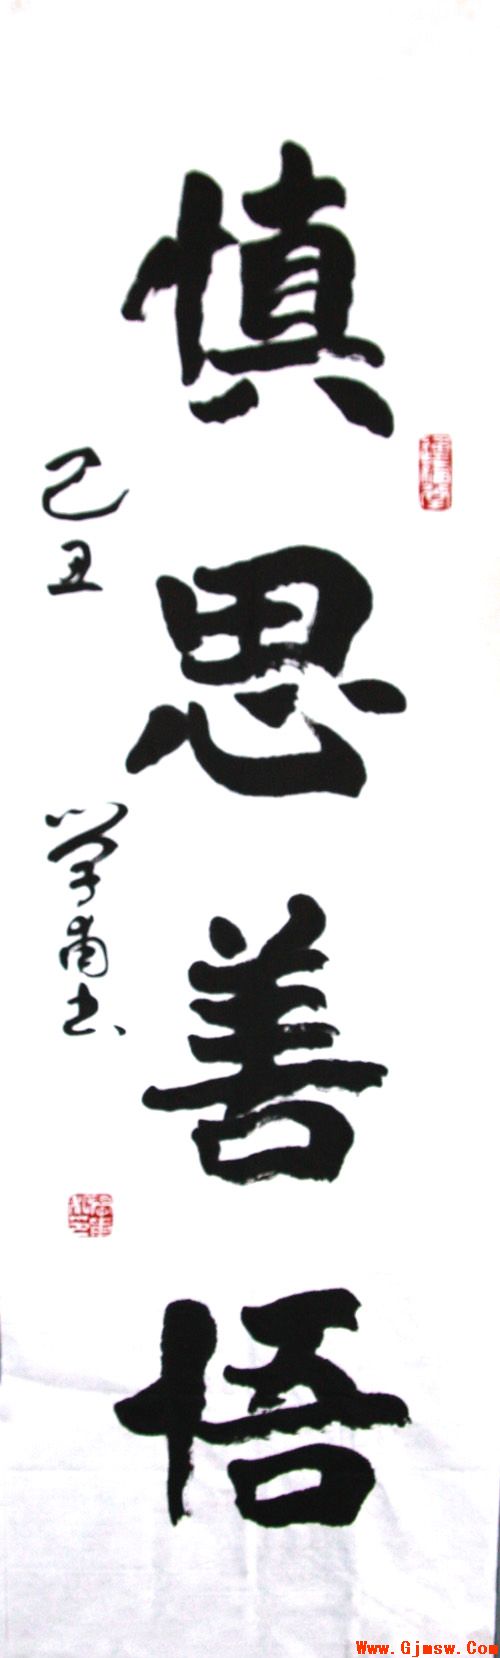 慎思善悟
己丑
学南书
Www.Gjmsw.Com